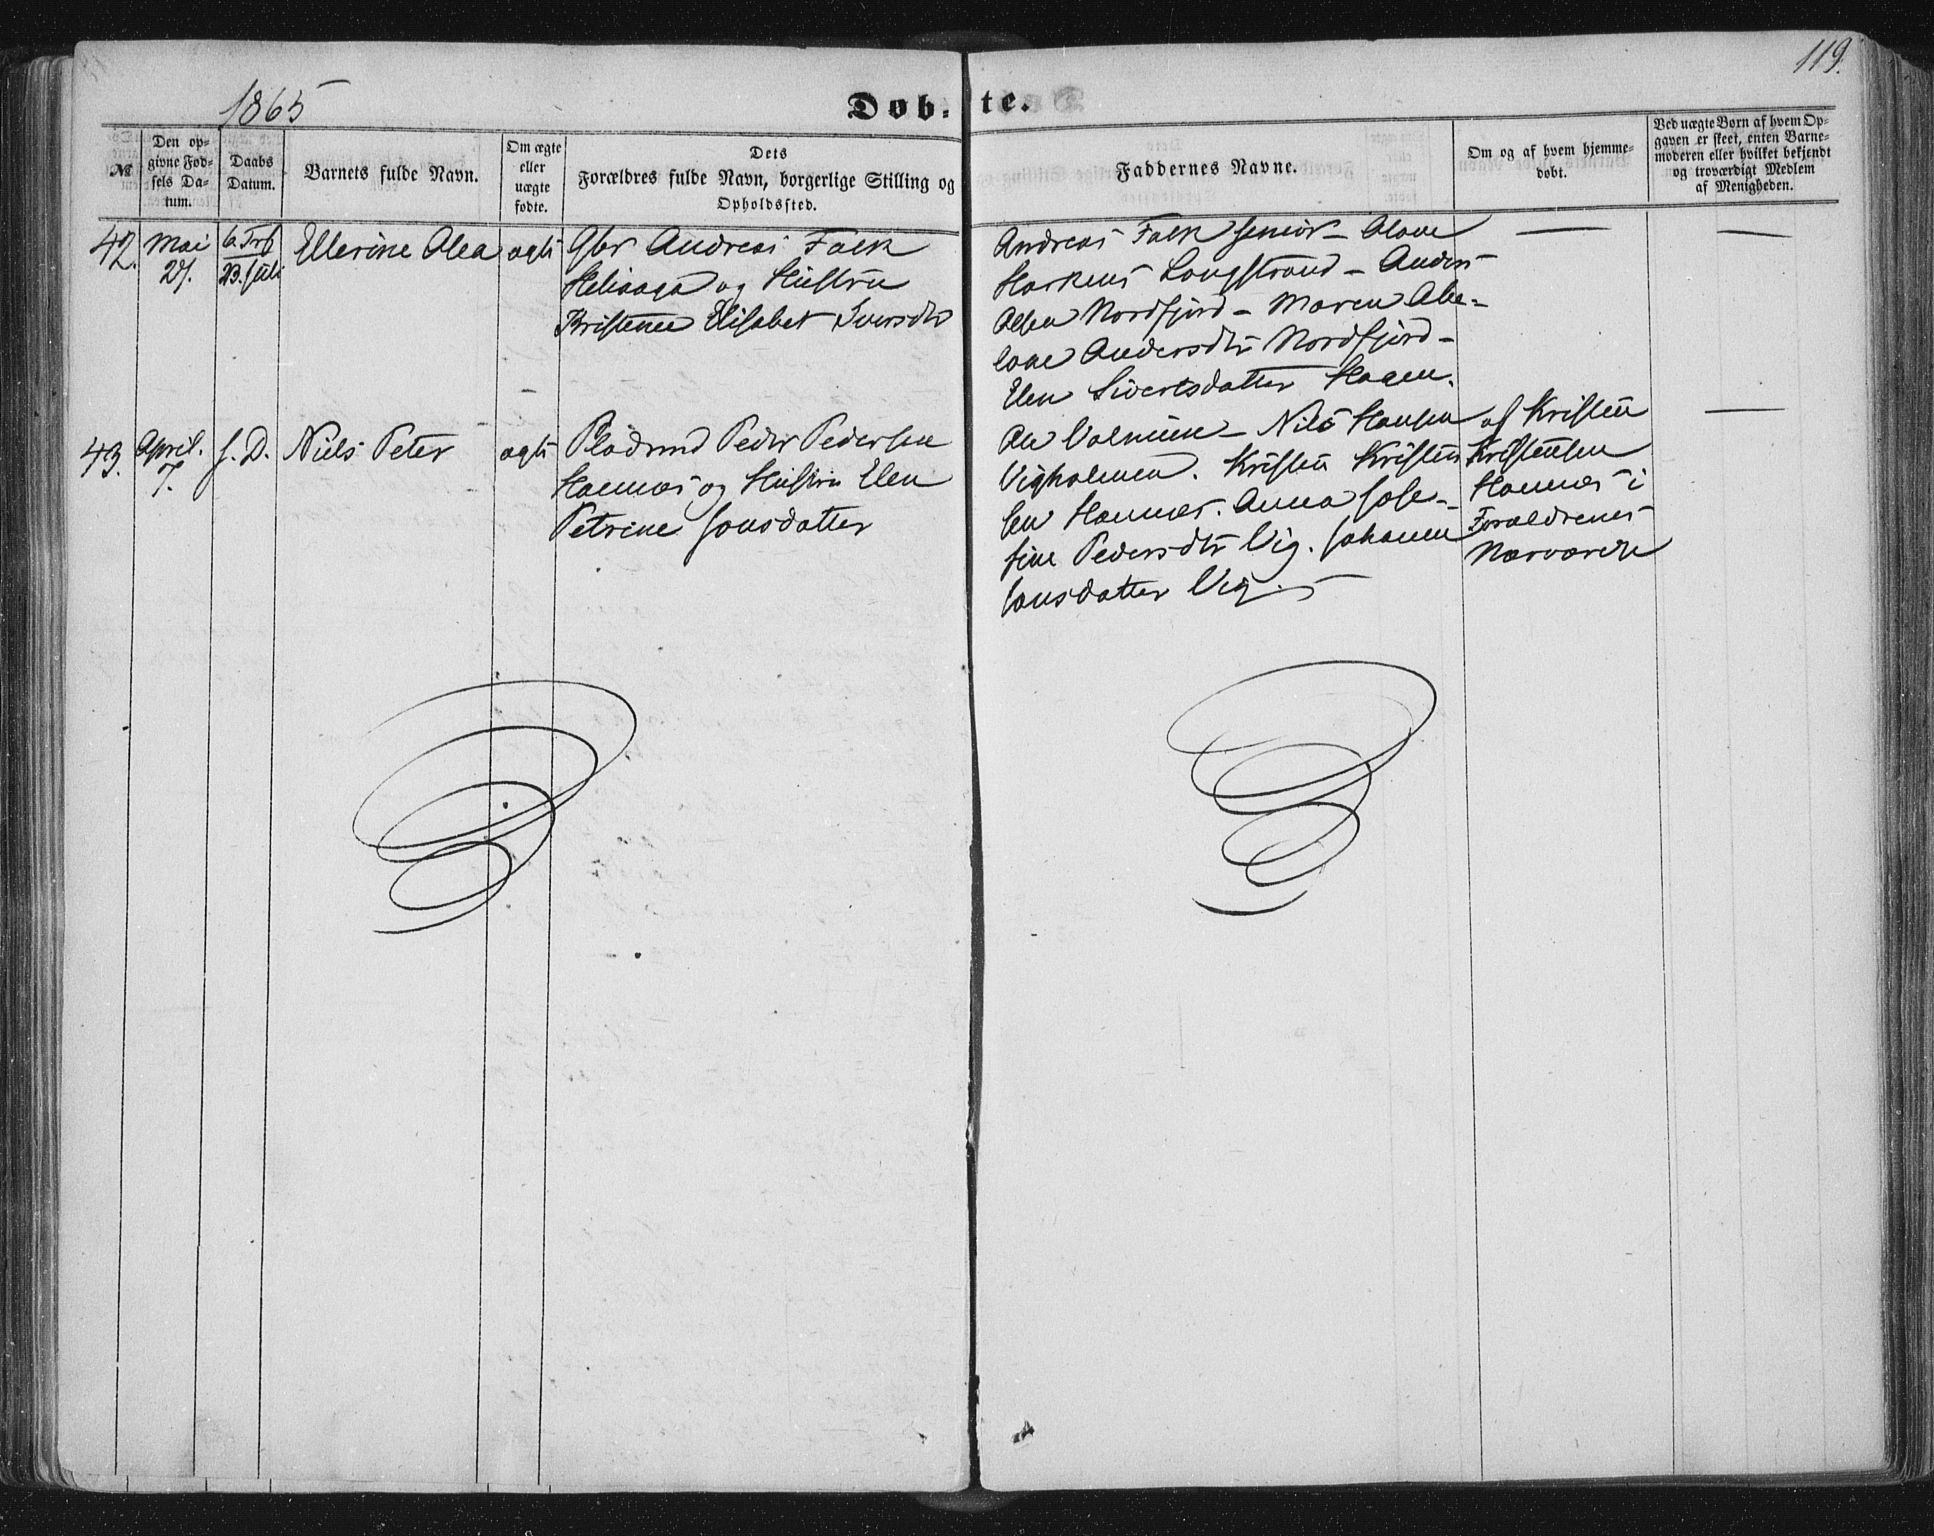 119.
1865
Døb-te.
№
Den op-
givne Fød-
sels Da-
tum.
Daabs
Datum.
Barnets fulde Navn.
Om ægte
eller
uægte
fødte.
Dets
Forældres fulde Navn, borgerlige Stilling og
Opholdssted.
Faddernes Navne.
Om og af hvem hjemme-
døbt.
Ved uægte Børn af hvem Op-
gaven er skeet, enten Barne-
moderen eller hvilket bekjendt
og troværdigt Medlem
af Menigheden.
42.
Mai
27.
6. Trf
23. Juli
Ellerine Olea
ægte
Gbr Andreas Falk
og Hustru
Elisabet Iversdtr
Andreas Falk senior - Olave
Langstrand - Anders
Olsen Nordfjord - Maren Abe-
lone Andersdtr Nordfjord -
Elen Sivertsdatter Hagen.
43.
April.
7.
s. D.
Niels Peter
ægte
Peder Pedersen
Havnnes og Hustru Elen
Petrine Jonsdatter
Nils Hansen
Vigholmen. Kristen Kristen
sen Havnnes. Anna Jose-
fine Pedersdtr Vig. Johanna
Jonsdatter Vig.
af Kristen
Kristensen
Havnnes i
Forældrenes
Nærværelse